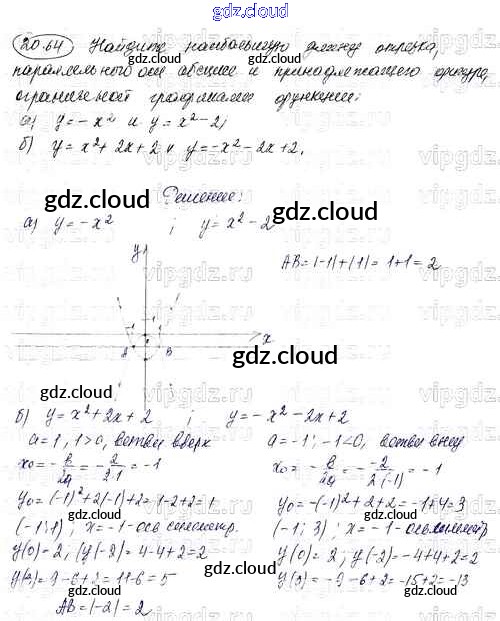 gdz.cloud
20.64 Найдите наибольшую длину отрезка,
параллельного оси абсцисс и принадлежащего фигуре,
ограниченной графиками функции:
а) y = -x² и y = x² - 2;
б) y = x² + 2x + 2 и y = -x² - 2x + 2.
gdz.cloud
Решение:
gdz.cloud
а) y = -x² ; y = x² - 2
AB = |-1| + |1| = 1 + 1 = 2
y
-1 1 x
A B
gdz.cloud
gdz.cloud
б) y = x² + 2x + 2 ; y = -x² - 2x + 2
a = 1, 1 > 0, ветви вверх a = -1; -1 < 0, ветви вниз
x₀ = -b/2a = -2/2·1 = -1 x₀ = -b/2a = -(-2)/2·(-1) = -1
gdz.cloud
y₀ = (-1)² + 2(-1) + 2 = 1 - 2 + 2 = 1 y₀ = -(-1)² + 2 + 2 = -1 + 4 = 3
(-1; 1); x = -1 - ось симметр. (-1; 3); x = -1 - ось симметр
gdz.cloud
y(0) = 2; y(-2) = 4 - 4 + 2 = 2 y(0) = 2; y(-2) = -4 + 4 + 2 = 2
gdz.cloud
y(3) = 9 - 6 + 2 = 11 - 6 = 5 y(3) = -9 - 6 + 2 = -15 + 2 = -13
AB = |-2| = 2
gdz.cloud
gdz.cloud